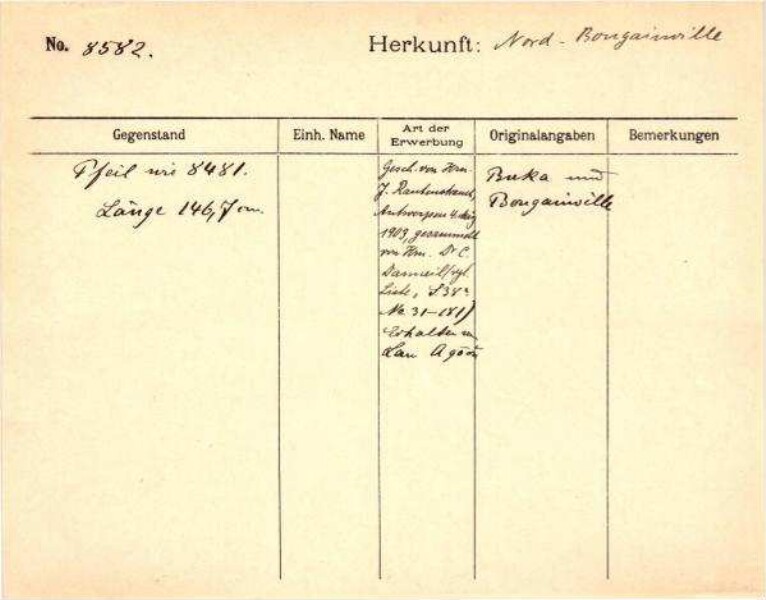 No. 8582. Herkunft: Nord-Bougainville
Gegenstand
Einh. Name
Art der
Erwerbung
Originalangaben
Bemerkungen
Pfeil wie 8481.
Länge 146,7 cm.
Gesch. von Hrn.
J. Rautenstrauch,
Antwerpen 4. Aug
1909, gesammelt
von Hrn. Dr C.
Liste, S38a
No 31-181)
Erhalten
Buka und
Bougainville